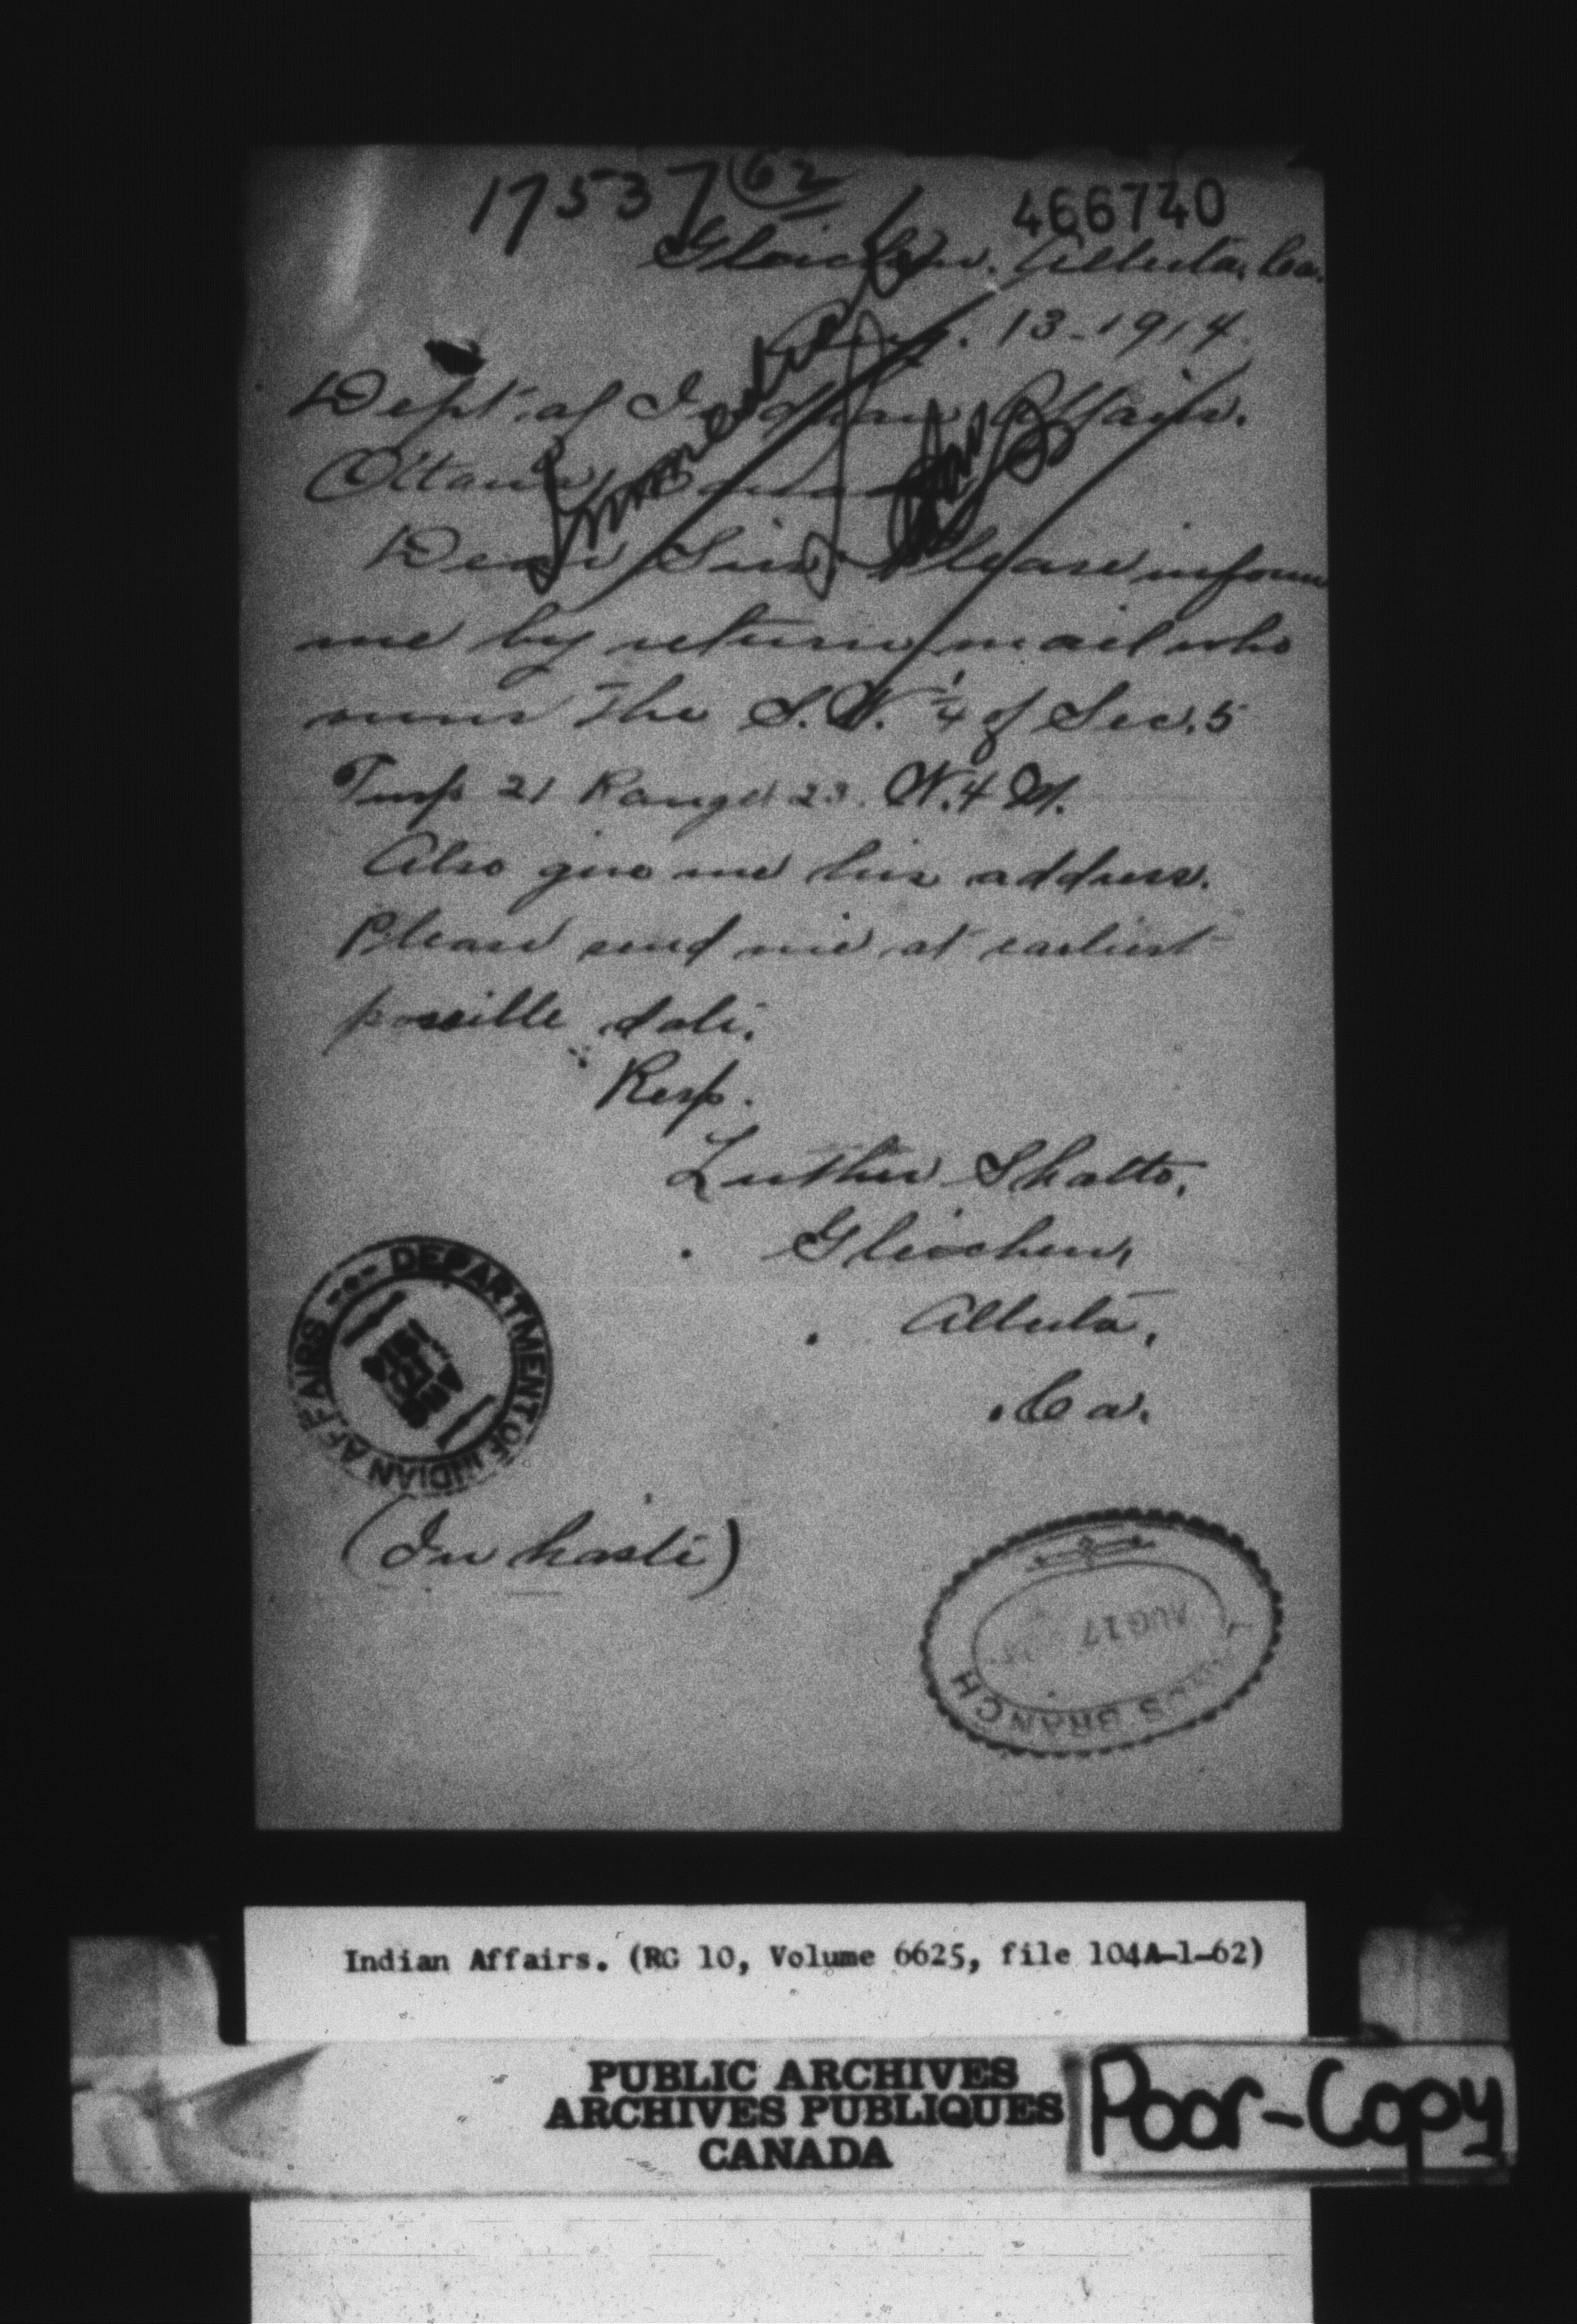 17537 62
466740
Gleichen. Alberta, Ca.
Aug. 13-1914.
Dept. of Indian Affairs.
Ottawa, Canada
Immediately
Dear Sir: Please inform
me by return mail who
owns the S.W. 1/4 of Sec. 5
Twp 21 Range 23. W. 4 M.
Also give me his address.
Please send me at earliest
possible date.
Resp.
Luther Shatto,
Gleichen,
Alberta,
Ca.
DEPARTMENT OF INDIAN AFFAIRS
(In haste)
AUG 17
BRANCH
Indian Affairs. (RG 10, Volume 6625, file 104A-1-62)
PUBLIC ARCHIVES
ARCHIVES PUBLIQUES
CANADA
Poor-Copy